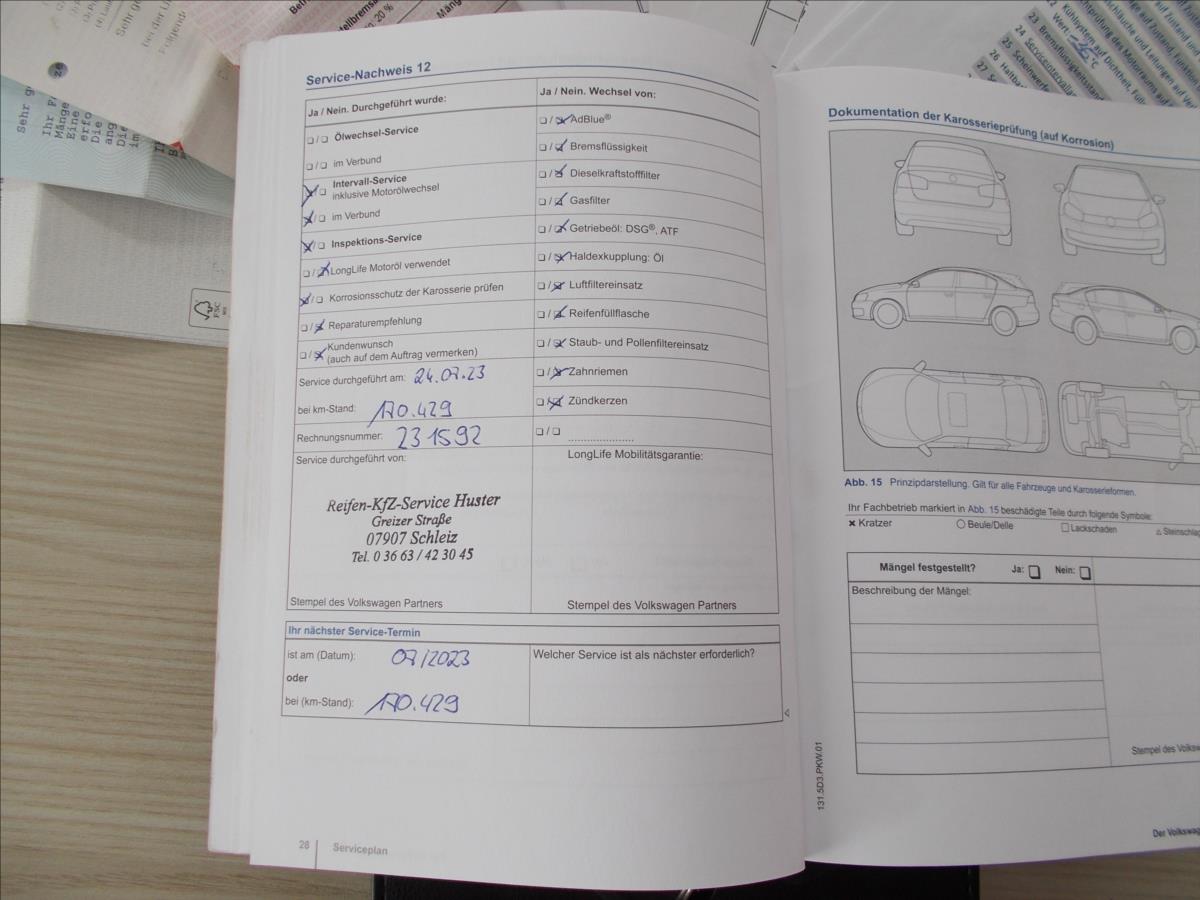 Service-Nachweis 12
Ja / Nein. Durchgeführt wurde:
❑/❑ Ölwechsel-Service
❑/❑ im Verbund
Intervall-Service
inklusive Motorölwechsel
im Verbund
Inspektions-Service
LongLife Motoröl verwendet
Korrosionsschutz der Karosserie prüfen
Reparaturempfehlung
Kundenwunsch
(auch auf dem Auftrag vermerken)
Service durchgeführt am: 24.07.23
bei km-Stand: 170.429
Rechnungsnummer: 231592
Service durchgeführt von:
Reifen-KfZ-Service Huster
Greizer Straße
07907 Schleiz
Tel. 0 36 63 / 42 30 45
Stempel des Volkswagen Partners
Ja / Nein. Wechsel von:
AdBlue®
Bremsflüssigkeit
Dieselkraftstofffilter
Gasfilter
Getriebeöl: DSG®, ATF
Haldexkupplung: Öl
Luftfiltereinsatz
Reifenfüllflasche
Staub- und Pollenfiltereinsatz
Zahnriemen
Zündkerzen
❑/❑ ......................
LongLife Mobilitätsgarantie:
Stempel des Volkswagen Partners
Ihr nächster Service-Termin
ist am (Datum): 07/2023
oder
bei (km-Stand): 170.429
Welcher Service ist als nächster erforderlich?
28 Serviceplan
Dokumentation der Karosserieprüfung (auf Korrosion)
Abb. 15 Prinzipdarstellung. Gilt für alle Fahrzeuge und Karosserieformen.
Ihr Fachbetrieb markiert in Abb. 15 beschädigte Teile durch folgende Symbole:
× Kratzer ○ Beule/Delle □ Lackschaden △ Steinschlag
Mängel festgestellt? Ja: ❑ Nein: ❑
Beschreibung der Mängel:
Stempel des Volkswa
131.5D3.PKW.01
Der Volkswag
FSC
20 %
Sehr g
Mänge
Eine
erfo
Die
ang
Die
im
23 Bremsflüssigkeitsstand
24 Serviceintervall
25 Scheinwerfe
26 Haltba
27
Kühlsystem auf Dichtheit, Füll
Wert: -26 °C